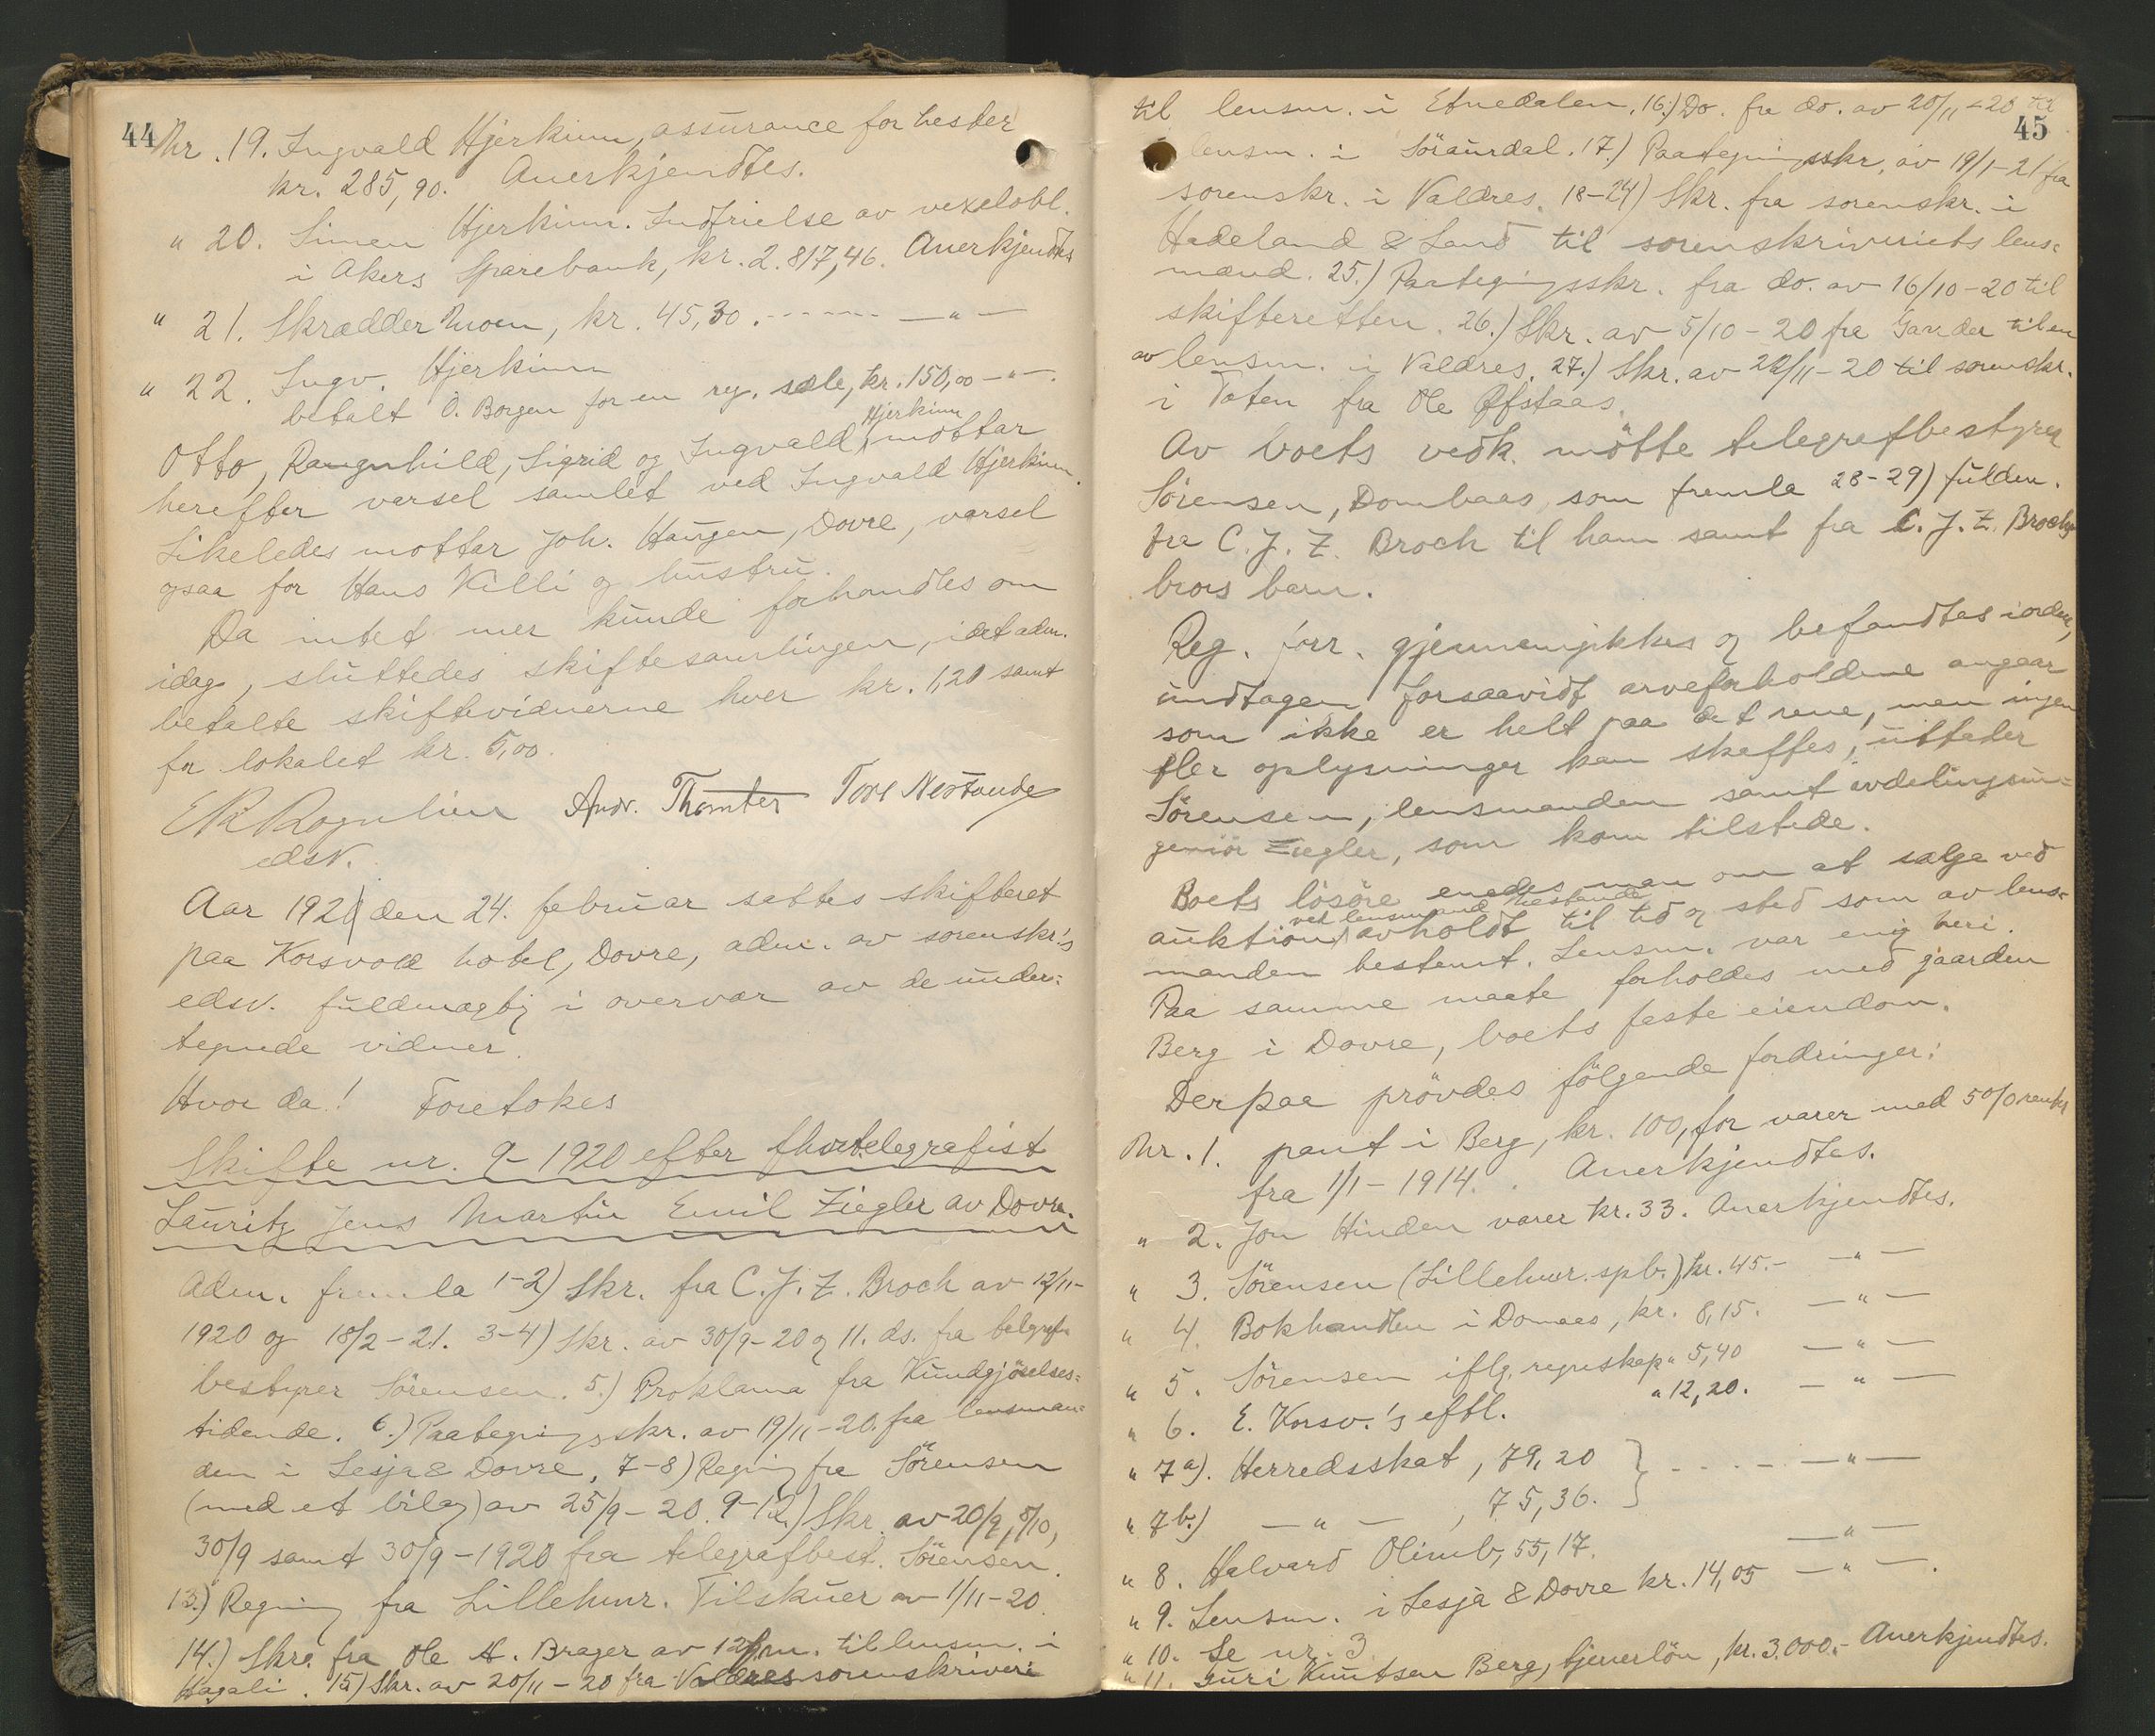 44
Nr. 19. Ingvald Hjerkinn, assurance for hester
kr. 285,90. Anerkjendtes.
" 20. Simen Hjerkinn. Indfrielse av vexelobl.
i Akers Sparebank, kr. 2.817,46. Anerkjendtes
" 21. Skrædder Moen, kr. 45,30. ------ —"—
" 22. Ingv. Hjerkinn
betalt O. Borgen for en ny. sæle, kr. 150,00 —"—.
Otto, Raugnhild, Sigrid og Ingvald Hjerkinn mottar
herefter varsel samlet ved Ingvald Hjerkinn.
Likeledes mottar Joh. Haugen, Dovre, varsel
ogsaa for Hans Killi og hustru.
Da intet mer kunde forhandles om
idag, sluttedes skiftesamlingen, idet adm.
betalte skiftevidnerne hver kr. 1,20 samt
for lokalet kr. 5,00.
Andr. Thomter Tore Nestande
edsv.
Aar 1921 den 24. februar sattes skifteret
paa Korsvold hotel, Dovre, adm. av sorenskr.'s
edsv. fuldmægtig i overvær av de under-
tegnede vidner.
Hvor da! Foretokes
Skifte nr. 9-1920 efter fhv. telegrafist
Lauritz Jens Martin Emil Ziegler av Dovre.
Adm. fremla 1-2) Skr. fra C. J. Z. Broch av 12/11-
1920 og 18/2-21. 3-4) Skr. av 30/9-20 og 11. ds. fra telegraf-
bestyrer Sörensen. 5.) Proklama fra Kundgjörelses-
tidende. 6.) Paategningsskr. av 19/11-20. fra lensman-
den i Lesja & Dovre, 7-8) Regning fra Sörensen
(med et bilag) av 25/9-20. 9-12.) Skr. av 20/9, 5/10,
30/9 samt 30/9-1920 fra telegrafbest. Sörensen.
13.) Regning fra Lillehmr. Tilskuer av 1/11-20.
14.) Skr. fra Ole A. Brager av til lensm. i
Hagali. 15) Skr. av 20/11-20 fra Valdres sorenskriveri
45
til lensm. i Etnedalen. 16.) Do. fra do. av 20/11-20 til
lensm. i Söraurdal. 17.) Paategningsskr. av 19/1-21 fra
sorenskr. i Valdres. 18-24) Skr. fra sorenskr. i
Hadeland & Land til sorenskriveriets lens-
mænd. 25.) Paategningsskr. fra do. av 16/10-20 til
skifteretten. 26.) Skr. av 5/10-20 fra Gaarder til en
av lensm. i Valdres. 27.) Skr. av 22/11-20 til sorenskr.
i Toten fra Ole Öfstaas.
Av boets vedk. mötte telegrafbestyrer
Sörensen, Dombaas, som fremla 28-29) fuldm.
fra C. J. Z. Broch til ham samt fra C. J. Z. Brochs
brors barn.
Reg. forr. gjennemgikkes og befandtes iorden,
undtagen forsaavidt arveforholdene angaar
som ikke er helt paa det rene, men ingen
fler oplysninger kan skaffes, uttaler
Sörensen, lensmanden samt avdelingsin-
geniör Ziegler, som kom tilstede.
Boets lösöre enedes man om at sælge ved
auktion ved lensmand Nestande avholdt til tid og sted som av lens-
manden bestemt. Lensm. var enig heri.
Paa samme maate forholdes med gaarden
Berg i Dovre, boets faste eiendom.
Derpaa prövdes fölgende fordringer:
Nr. 1. pant i Berg, kr. 100, for varer med 5% renter
fra 1/1-1914. . Anerkjendtes.
" 2. Jon Hinden varer kr. 33. Anerkjendtes.
" 3. Sörensen (Lillehmr. spb.) kr. 45.- —"—
" 4. Bokhandlen i Domaas, kr. 8,15. —"—
" 5. Sörensen iflg. regnskap " 5,40 —"—
" 6. E. Korsv.'s eftl. " 12,20. —"—
" 7a). Herredsskat, 79,20 } - - - - —"—
" 7b.) —"— , 75,36.
" 8. Halvard Olimb, 55,17. —"—
" 9. Lensm. i Lesja & Dovre kr. 14,05 —"—.
" 10. Se nr. 3
" 11. Guri Knutsen Berg, tjenerlön, kr. 3.000.- Anerkjendtes.